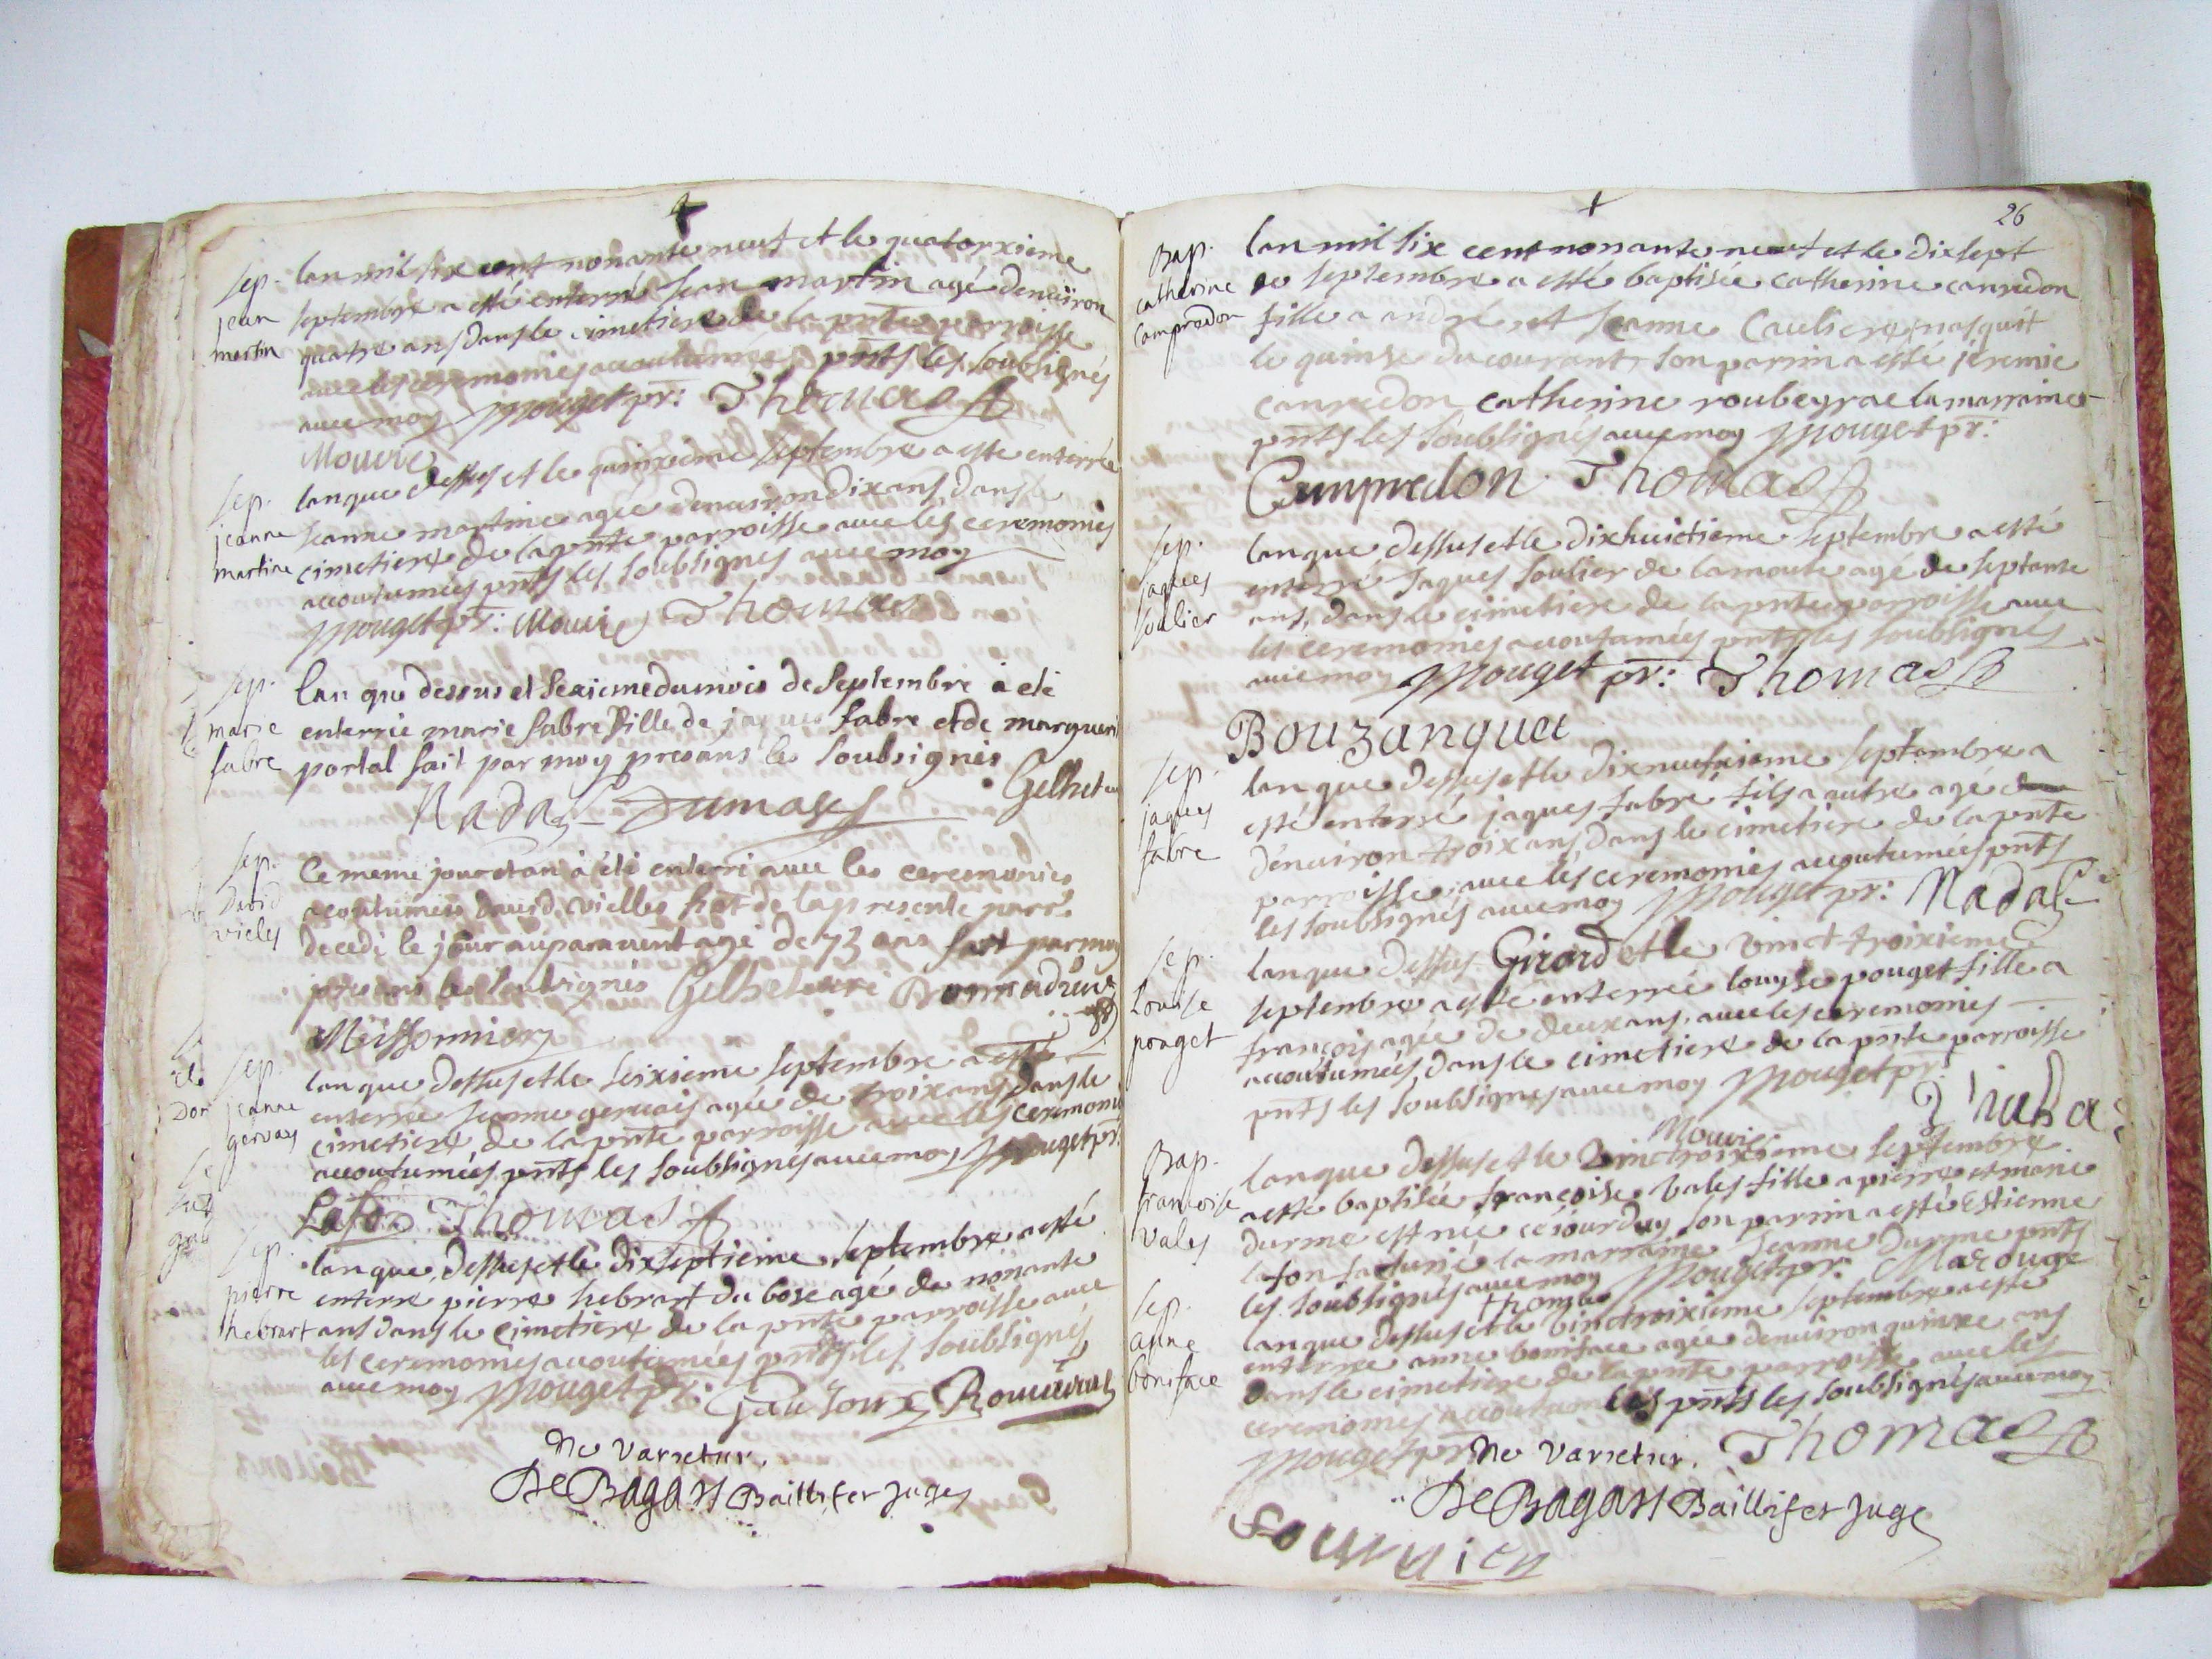 sep.
jean
martin
lan mil six cent nonante neuf et le quatorxieme
septembre a esté enterré Jean martin agé denuiron
quatre ans dans le cimetiere de la pnte parroisse
auec les ceremonies accoutumées pnts les soubsignés
auec moy Pouget pr: Thomas
Mouvie
sep.
jeanne
martine
lan que dessus et le quinxieme septembre a este enterrée
Jeanne martine agée denuiron dix ans dans le
cimetiere de la pnte parroisse auec les ceremonies
accoutumées pnts les soubsignes auec moy
Pouget pr: Mouvie Thomas
sep.
marie
fabre
lan que dessus et seaieme du mois de septembre a eté
enterrie marie fabre fille de jaques fabre et de margueri
portal fait par moy presans les soubsignes
Nadal Dumas Gelhet
sep.
David
vieles
Ce meme jour et an à été enterri auec les ceremonies
acoutumées david vielles ht de la presente parr.
decedé le jour auparauent agé de 73 ans fait par moy
presans les soubsignés Gelhet
Meissonnier
sep.
jeanne
gervays
lan que dessus et le seixieme septembre a esté
enterrée Jeanne gervais agée de troix ans dans le
cimetiere de la pnte parroisse auec les ceremonies
accoutumées pnts les soubsignes auec moy Pouget pr:
Lafon Thomas
sep.
pierre
hebrart
lan que dessus et le dixseptieme septembre a esté
enterre pierre hebrart du bosc agé de nonante
ans dans le cimetiere de la pnte parroisse auec
les ceremonies accoutumées pnts les soubsignés
auec moy Pouget pr:
Ne Varietur.
De Bagars Baillif et Juge
26
Bap.
catherine
campredon
lan mil six cent nonante neuf et le dixsept
de septembre a esté baptisée catherine canredon
fille a andré et Jeanne Cauliere nasquit
le quinse du courant son parrin a esté jeremie
canredon catherine roubeyrac la marraine
pnts les soubsignés auec moy Pouget pr:
Campredon Thomas
sep.
jaques
soulier
lan que dessus et le dixhuictieme septembre a esté
enterré Jaques soulier de lamoute agé de septante
ans, dans le cimetiere de la pnte parroisse auec
les ceremonies accoutumées pnts les soubsignés
auec moy Pouget pr: Thomas
Bouzanquet
sep.
jaques
fabre
lan que dessus et le dixneufieme septembre a
esté enterré jaques fabre fils a autre agé
denuiron troix ans dans le cimetiere de la pnte
parroisse auec les ceremonies accoutumées pnts
les soubsignés auec moy Pouget pr: Nadal
sep.
Louise
pouget
lan que dessus Girard et le vinct troixieme
septembre a esté enterrée louyse pouget fille a
françois agée de deux ans, auec les ceremonies
accoutumées dans le cimetiere de la pnte parroisse
pnts les soubsignes auec moy Pouget pr:
Mouvie
Bap.
francoise
vales
lan que dessus et le vinctroixieme septembre
a esté baptisée françoise vales fille a pierre et marie
durme est née ce jourduy son parrin a esté Estienne
lafon la marraine Jeanne durme pnts
les soubsignés auec moy Pouget pr: Marouge
thomas
sep.
anne
boniface
lan que dessus et le vinctroixieme septembre a este
enterree anne boniface agée denuiron quinxe ans
dans le cimetiere de la pnte parroisse auec les
ceremonies accoutumées pnts les soubsignés auec moy
Pouget pr: Thomas
Ne Varietur.
De Bagars Baillif et Juge